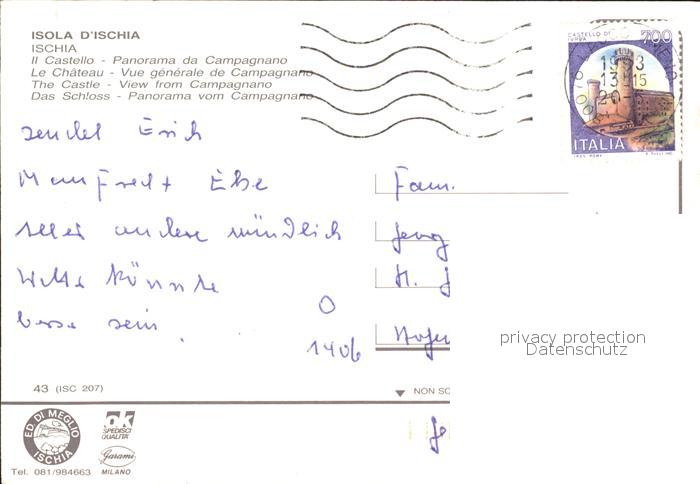 ISOLA D'ISCHIA
ISCHIA
Il Castello - Panorama da Campagnano
Le Château - Vue générale de Campagnano
The Castle - View from Campagnano
Das Schloss - Panorama vom Campagnano
CASTELLO DI
700
1993
13-15
20
ITALIA
sendet Erich
Manfred + Ebe
alles andere mündlich
Wetter könnte
besser sein.
O
1406
Fam.
Georg
H. J
Hofer
43 (ISC 207)
NON SC
ED. DI MEGLIO
ISCHIA
ok
SPEDISCI
QUALITA'
Garami
MILANO
Tel. 081/984663
privacy protection
Datenschutz